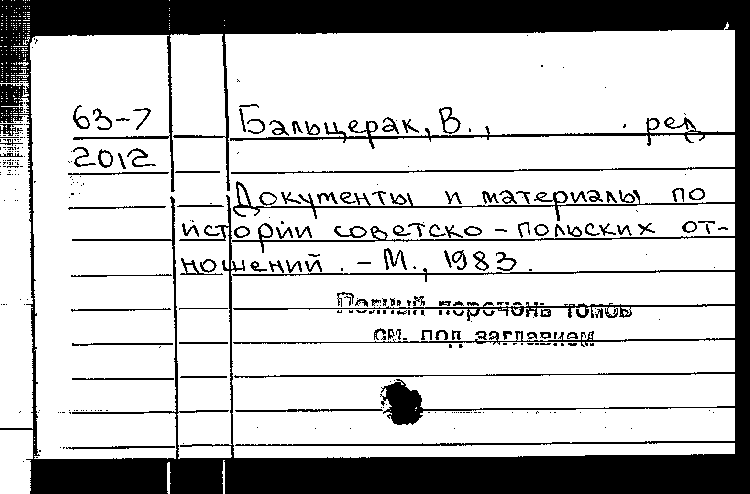 63-7 Бальцерак, В., ред
2012
Документы и материалы по
истории советско-польских от-
ношений. - М., 1983.
Полный перечень томов
см. под заглавием